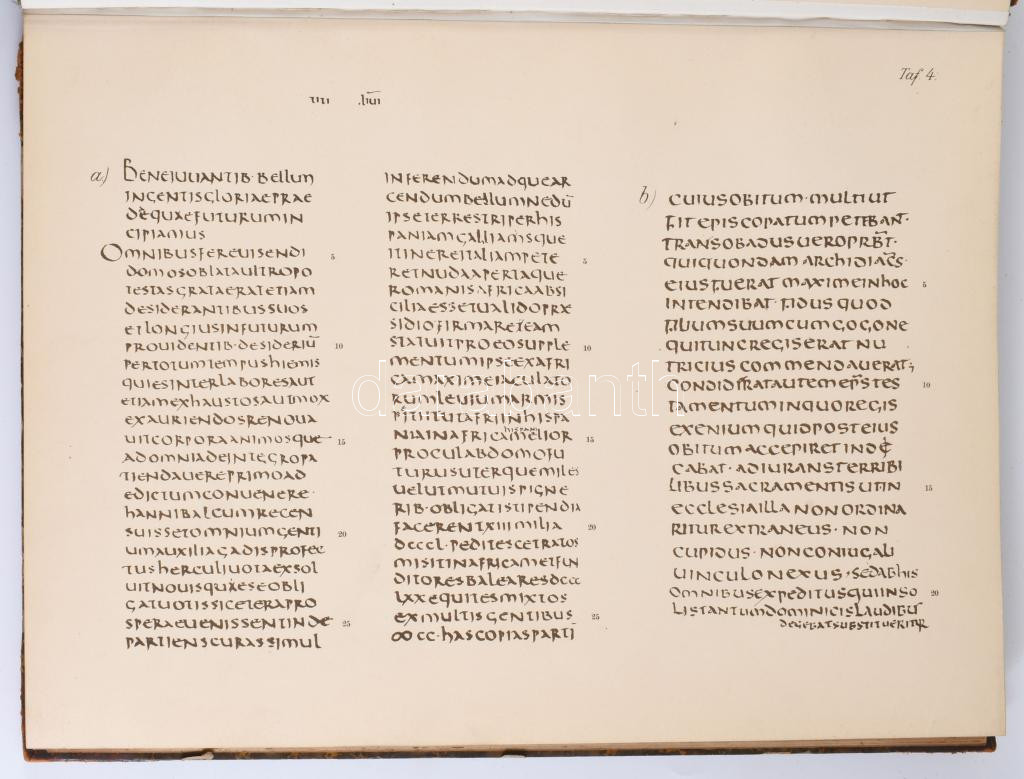 Taf. 4.
IIII .LIIII
a)
BENEIUUANTIB·BELLUM
INGENTISGLORIAEPRAE
DEQUAEFUTURUMIN
CIPIAMUS
OMNIBUSFEREUISENDI
DOMOSOBLATAULTROPO
TESTASGRATAERATETIAM
DESIDERANTIBUSSUOS
ETLONGIUSINFUTURUM
PROUIDENTIB·DESIDERIŪ
PERTOTUMTEMPUSHIEMIS
QUIESINTERLABORESAUT
ETIAMEXHAUSTOSAUTMOX
EXAURIENDOSRENOUA
UITCORPORAANIMOSQUE
ADOMNIADEINTEGROPA
TIENDAUEREPRIMOAD
EDICTUMCONUENERE·
HANNIBALCUMRECEN
SUISSETOMNIUMGENTI
UMAUXILIAGADISPROFEC
TUSHERCULIUOTAEXSOL
UITNOUISQUAESEOBLI
GATUOTISSICETERAPRO
SPERAEUENISSENTINDE
PARTIENSCURASSIMUL
5
10
15
20
25
INFERENDUMADQUEAR
CENDUMBELLUMNEDŪ
IPSETERRESTRIPERHIS
PANIAMGALLIAMSQUE
ITINEREITALIAMPETE
RETNUDAAPERTAQUE
ROMANISAFRICAABSI
CILIAESSETUALIDOPRAE
SIDIOFIRMAREEAM
STATUITPROEOSUPPLE
MENTUMIPSEEXAFRI
CAMAXIMEIACULATO
RUMLEUIUMARMIS
PITIITUTAFRIINHISPA
HISPANI
NIAINAFRICAMELIOR
PROCULABDOMOFU
TURUSUTERQUEMILES
UELUTMUTUISPIGNE
RIB·OBLIGATISTIPENDIA
FACERENTXIIIMILIA
DCCCL·PEDITESCETRATOS
MISITINAFRICAMETFUN
DITORESBALEARESDCCC
LXXEQUITESMIXTOS
EXMULTISGENTIBUS
∞CC·HASCOPIASPARTI
5
10
15
20
25
b)
CUIUSOBITUM·MULTIUT
FITEPISCOPATUMPETEBANT·
TRANSOBADUSUEROPRBT·
QUIQUONDAMARCHIDIACS·
EIUSFUERATMAXIMEINHOC
INTENDIBAT·FIDUSQUOD
FILIUMSUUMCUMGOGONE
QUITUNCREGISERATNU
TRICIUSCOMMENDAUERAT;
CONDIDERATAUTEMEPSTES
TAMENTUMINQUOREGIS
EXENIUMQUIDPOSTEIUS
OBITUMACCEPIRETINDE
CABAT·ADIURANSTERRIBI
LIBUSSACRAMENTISUTIN
ECCLESIAILLANONORDINA
RITUREXTRANEUS·NON
CUPIDUS·NONCONIUGALI
UINCULONEXUS·SEDABHIS
OMNIBUSEXPEDITUSQUIINSO
LISTANTUMDOMINICISLAUDIBUS
DEGEBATSUBSTITUERITUR
5
10
15
20
darabanth